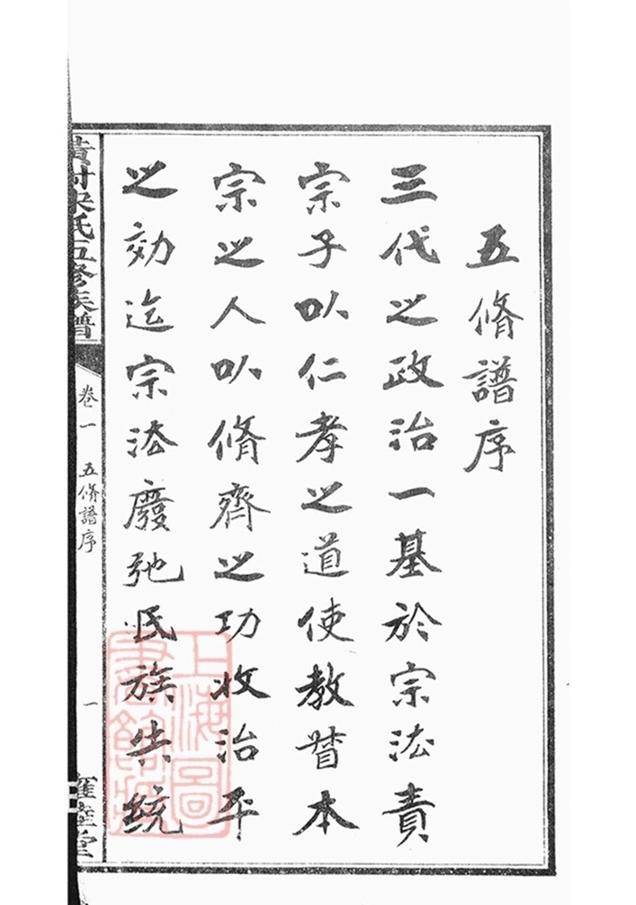 五脩譜序
三代之政治一基於宗法責
宗子以仁孝之道使教督本
宗之人以脩齊之功收治平
之効迄宗法廢弛民族失統
氏五修族譜
卷一 五脩譜序
一
睦堂
上海圖
書館藏